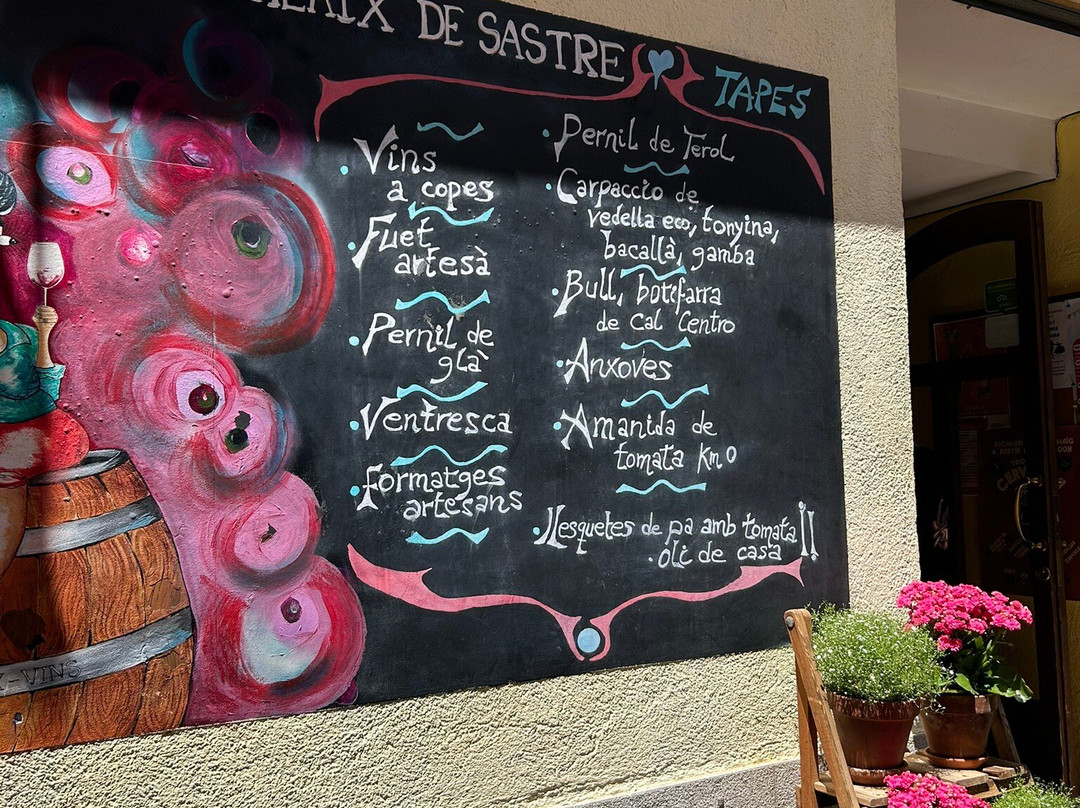 DE SASTRE
TAPES
· Vins
a copes
· Fuet
artesà
· Pernil de
glà
· Ventresca
· Formatges
artesans
· Pernil de Terol
· Carpaccio de
vedella eco, tonyina,
bacallà, gamba
· Bull, botifarra
de Cal Centro
· Anxoves
· Amanida de
tomata km 0
· Llesquetes de pa amb tomata!!
· oli de casa
-VINS